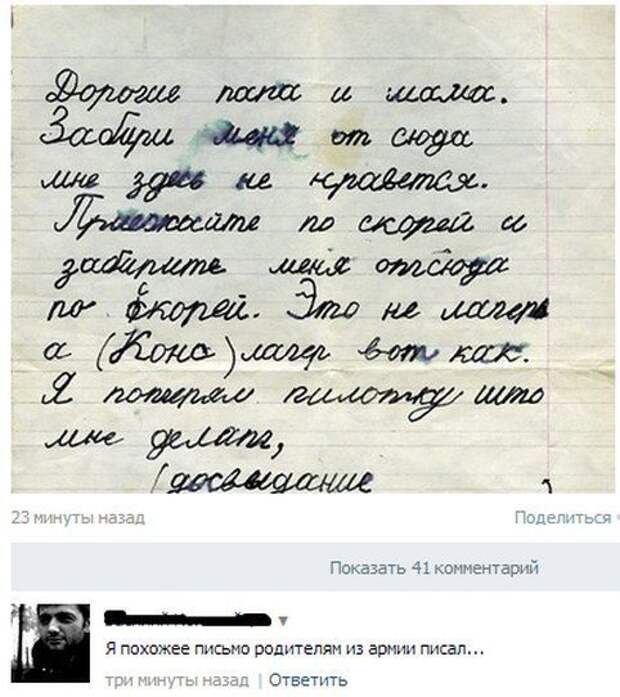 Дорогие папа и мама.
Забири меня от сюда
мне здесь не нравется.
Приезжайте по скорей и
забирите меня отсюда
по скорей. Это не лагерь
а (Конс) лагер вот как.
Я потерял пилотку што
мне делат,
(досвидание
23 минуты назад
Поделиться
Показать 41 комментарий
Я похожее письмо родителям из армии писал...
три минуты назад | Ответить